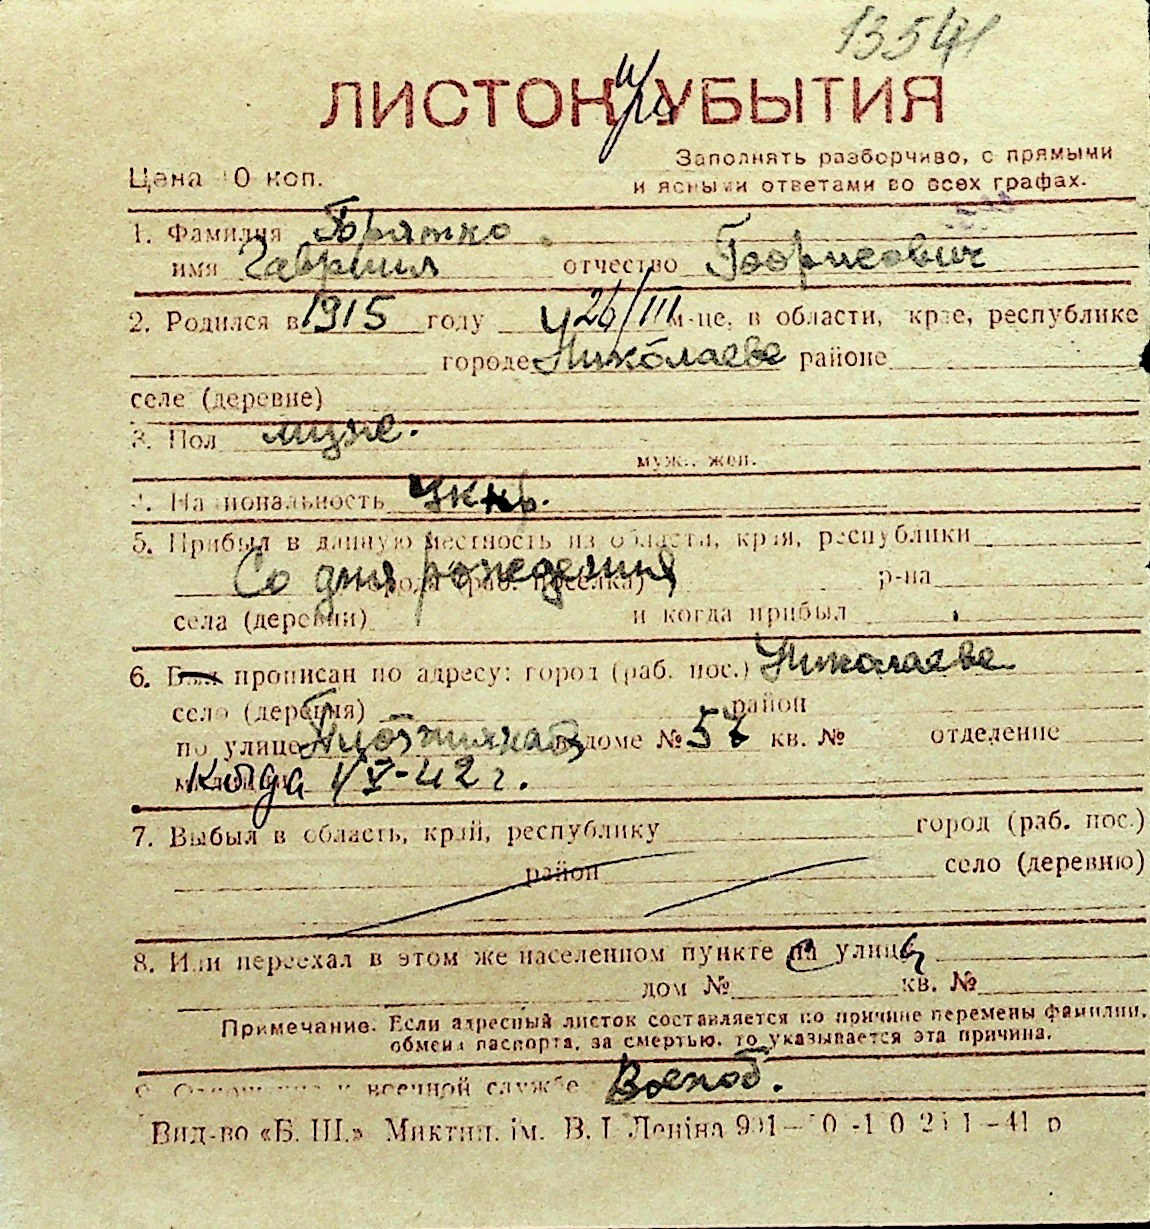 13541
ЛИСТОК УБЫТИЯ
Заполнять разборчиво, с прямыми
Цена 10 коп.
и ясными ответами во всех графах.
1. Фамилия
имя Гавриил отчество Борисович
2. Родился в 1915 году 26/III м-це, в области, крае, республике
городе Николаеве районе
селе (деревне)
3. Пол муж.
муж., жен.
4. Национальность Укр.
5. Прибыл в данную местность из области, края, республики
Со дня рождения
города (раб. поселка) р-на
села (деревни) и когда прибыл
6. Был прописан по адресу: город (раб. пос.) Николаеве
село (деревня) район
по улице в доме № 57 кв. № отделение
милиции Когда 1/V-42 г.
7. Выбыл в область, край, республику город (раб. пос.)
район село (деревню)
8. Или переехал в этом же населенном пункте на улицу
дом № кв. №
Примечание. Если адресный листок составляется по причине перемены фамилии,
обмена паспорта, за смертью, то указывается эта причина.
9. Отношение к военной службе Военоб.
Вид-во «Б. Ш.» Миктип. ім. В. І. Леніна